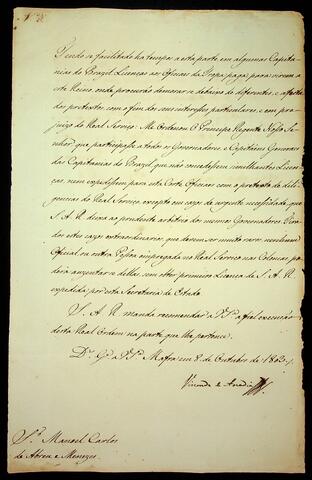 Tendo se facilitado ha tempos a esta parte em algumas Capita-
nias do Brazil Licenças aos Officiaes da Tropa paga para virem a
este Reino, onde procurão demorar-se debaixo de differentes, e affecta-
dos pretextos, com o fim dos seus interesses particulares, e com pre-
juizo do Real Serviço: Me Ordenou O Principe Regente Nosso Se-
nhor, que participasse a todos os Governadores, e Capitaens Generaes
das Capitanias do Brazil, que não concedessem similhantes Licen-
ças, nem expedissem para esta Corte Officiaes com o pretexto de dili-
gencias do Real Serviço, excepto em cazo de urgente necessidade, que
S. A. R. deixa ao prudente arbitrio dos mesmos Governadores. Fora
destes cazos extraordinarios, que devem ser muito raros, nenhum
Official, ou outra Pessoa empregada no Real Serviço nas Colonias, po-
derá auzentar-se dellas sem obter primeiro Licença de S. A. R.
expedida por esta Secretaria de Estado.
S. A. R. manda recomendar a V. Sª. a fiel execução
desta Real Ordem na parte que lhe pertence.
Ds. Gde. a V. Sª. Mafra em 8 de Outubro de 1803.
Visconde de Anadia
Sr. Manoel Carlos
de Abreu e Menezes.